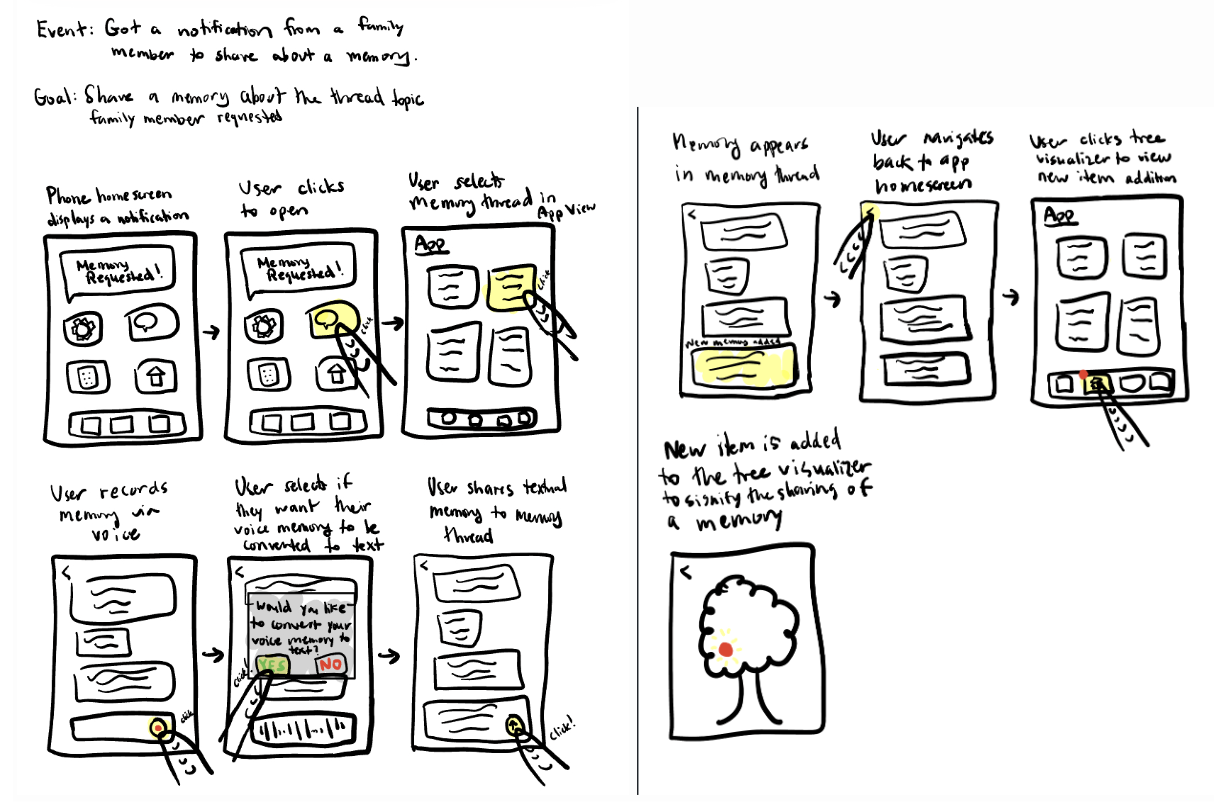 Event: Got a notification from a family
member to share about a memory.
Goal: Share a memory about the thread topic
family member requested
Phone homescreen
displays a notification
Memory
Requested!
User clicks
to open
Memory
Requested!
click
User selects
Memory thread in
App View
App
click
User records
memory via
voice
click
User selects if
they want their
voice memory to be
converted to text
Would you like
to convert your
voice memory to
text?
YES
NO
click!
User shares textual
memory to memory
thread
click!
Memory appears
in memory thread
New memory added
User navigates
back to app
homescreen
User clicks tree
visualizer to view
new item addition
App
New item is added
to the tree visualizer
to signify the sharing of
a memory